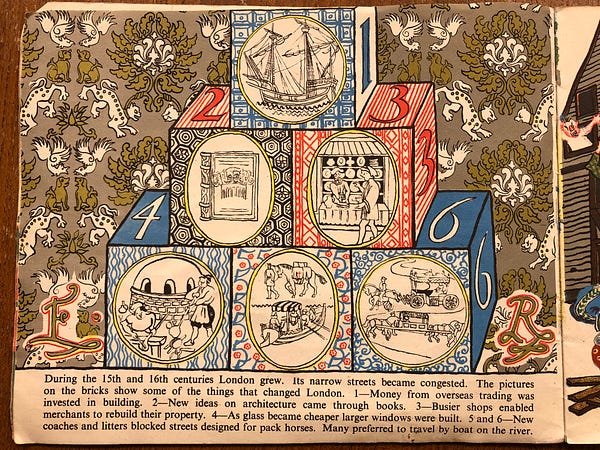 1
2 3
3
4 6
6
E R
During the 15th and 16th centuries London grew. Its narrow streets became congested. The pictures
on the bricks show some of the things that changed London. 1—Money from overseas trading was
invested in building. 2—New ideas on architecture came through books. 3—Busier shops enabled
merchants to rebuild their property. 4—As glass became cheaper larger windows were built. 5 and 6—New
coaches and litters blocked streets designed for pack horses. Many preferred to travel by boat on the river.